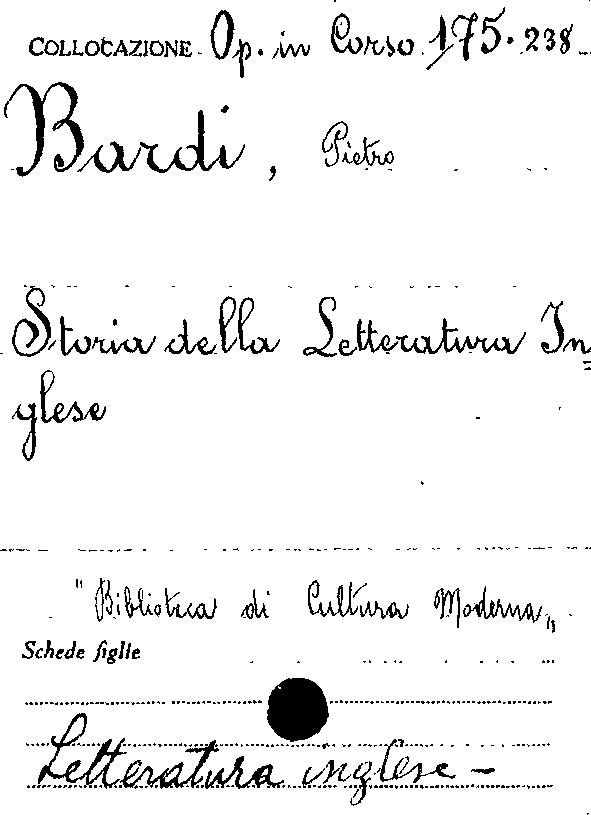 COLLOCAZIONE Op. in Corso 175.238
Bardi, Pietro
Storia della Letteratura In=
glese
"Biblioteca di Cultura Moderna„
Schede figlie
Letteratura inglese -